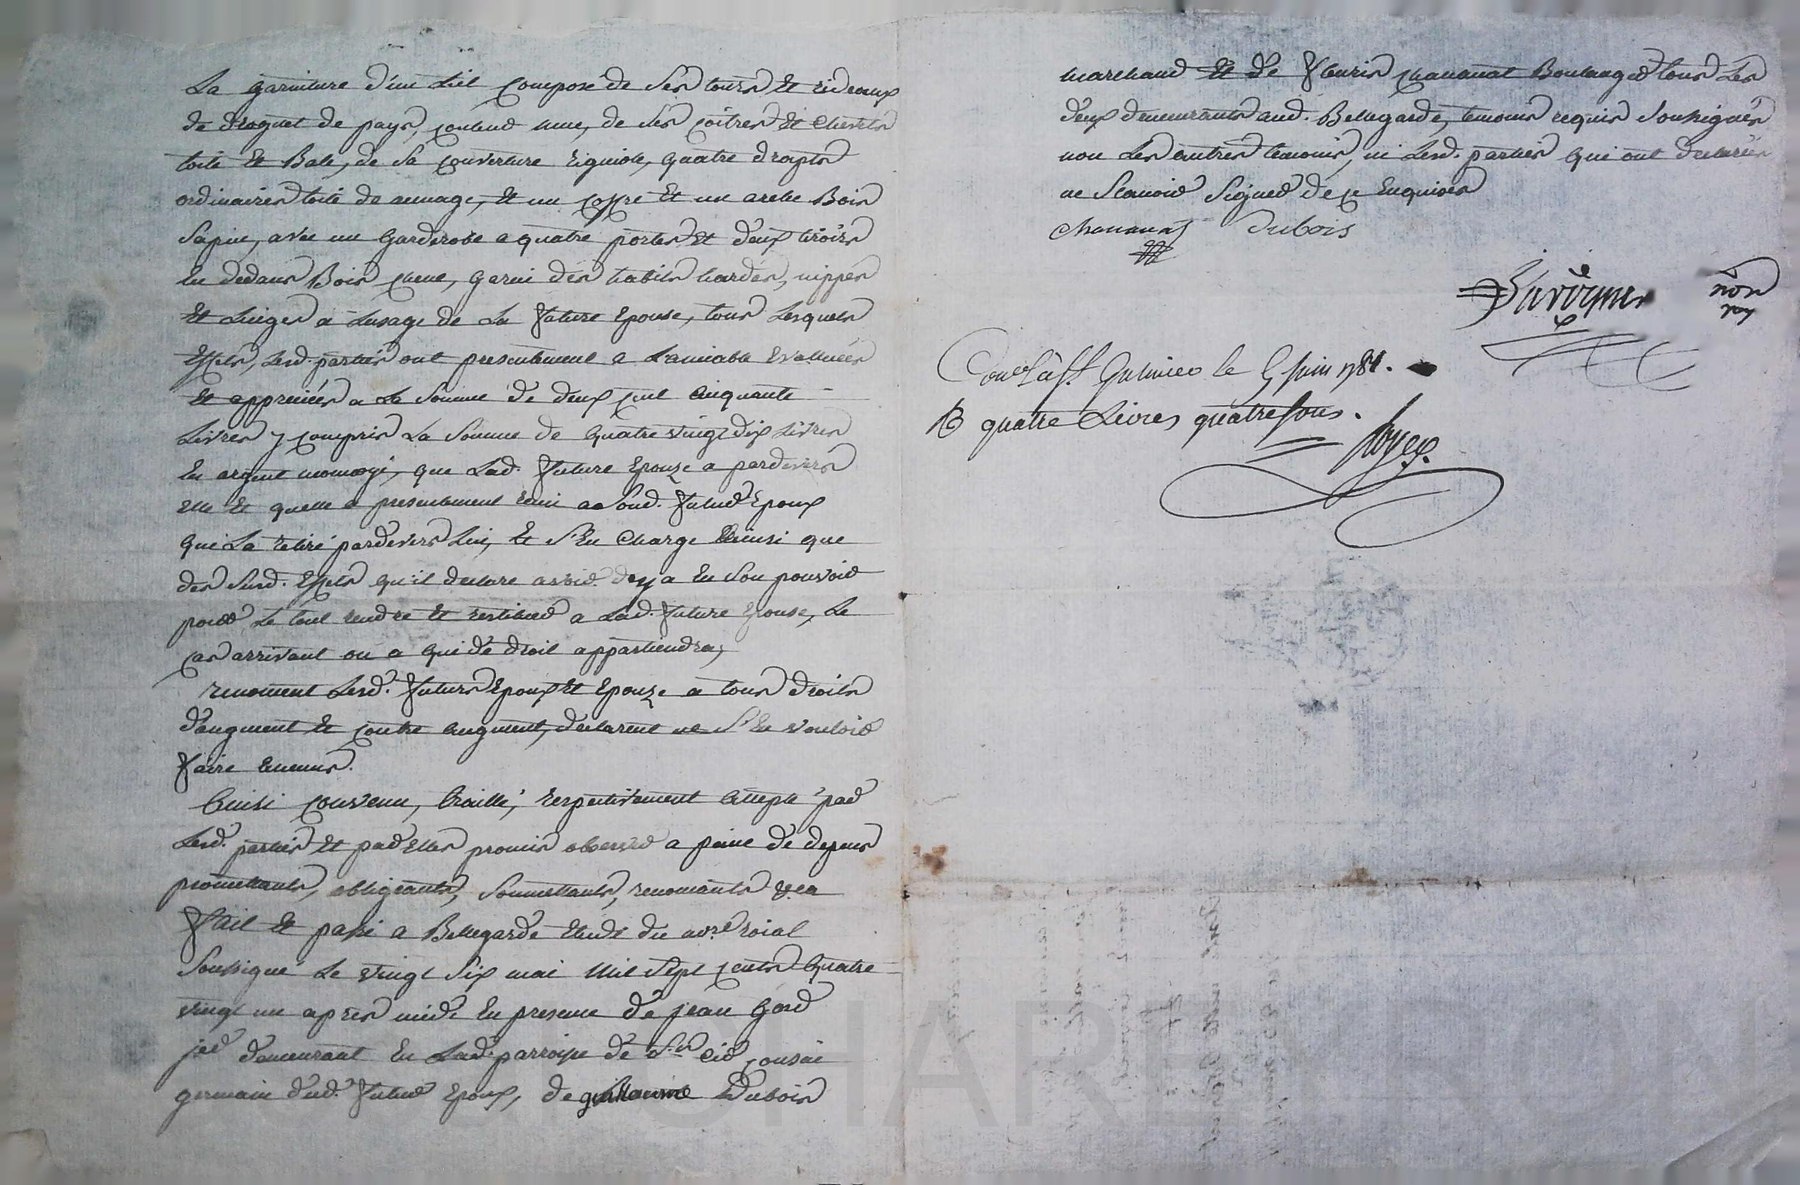 La garniture d'un Lit Composé de Ses tours et rideaux
de droguet de pays, couleur mue, de Ses coitres et Chevets
toile et Bale, de Sa couverture, quatre draps
ordinaires toile de menage, et un coffre et un arche Bois
Sapin, avec un Garderobe a quatre portes et deux tiroirs
En dedans Bois chene, Garni des habits hardes, nippes
et Linges a Lusage de La future Epouse, tous Lesquels
Effets, Lesd. parties ont presentement a Lamiable Evalluées
et appreciés a La Somme de deux cent Cinquante
Livres y compris La Somme de quatre vingt dix Livres
En argent monoyé, que Lad. future Epouze a pardevers
elle et quelle a presentement remi aud. futur Epoux
qui La retiré pardevers Lui, et S'En Charge Ainsi que
des Susd. Effets qu'il declare avoir deja En Son pouvoir
pour Le tout rendre et restituer a Lad. future Epouse, Le
cas arrivant ou a qui de droit appartiendra,
renoncent Lesd. futurs Epoux et Epouze a tous droits
d'augment et contre augment, declarent ne S'En vouloir
faire Aucuns.
Ainsi convenu, traitté, respectivement accepté par
Lesd. parties et par Elles promis observer a peine de depens
promettants, obligeants, Soumettants, renonçants &ca
fait et passé a Bellegarde Etude du nore. roial
Soussigné Le vingt Six mai Mil Sept cents Quatre
vingt un apres midi En presence de jean Gord
jer demeurant En Lad. parroisse de St. Cir cousin
germain dud. futur Epoux, de guillaume Dubois
marchand et de fleuris chananat Boulanger tous Les
deux demeurants aud. Bellegarde, temoins requis Soussignés
non Les autres temoins, ni Lesd. parties qui ont declarées
ne Scavoir Signer de ce Enquises
Chananat Dubois
non
roy
Conlé à St. Galmier le 5 Juin 1781.
R quatre Livres quatre sous.